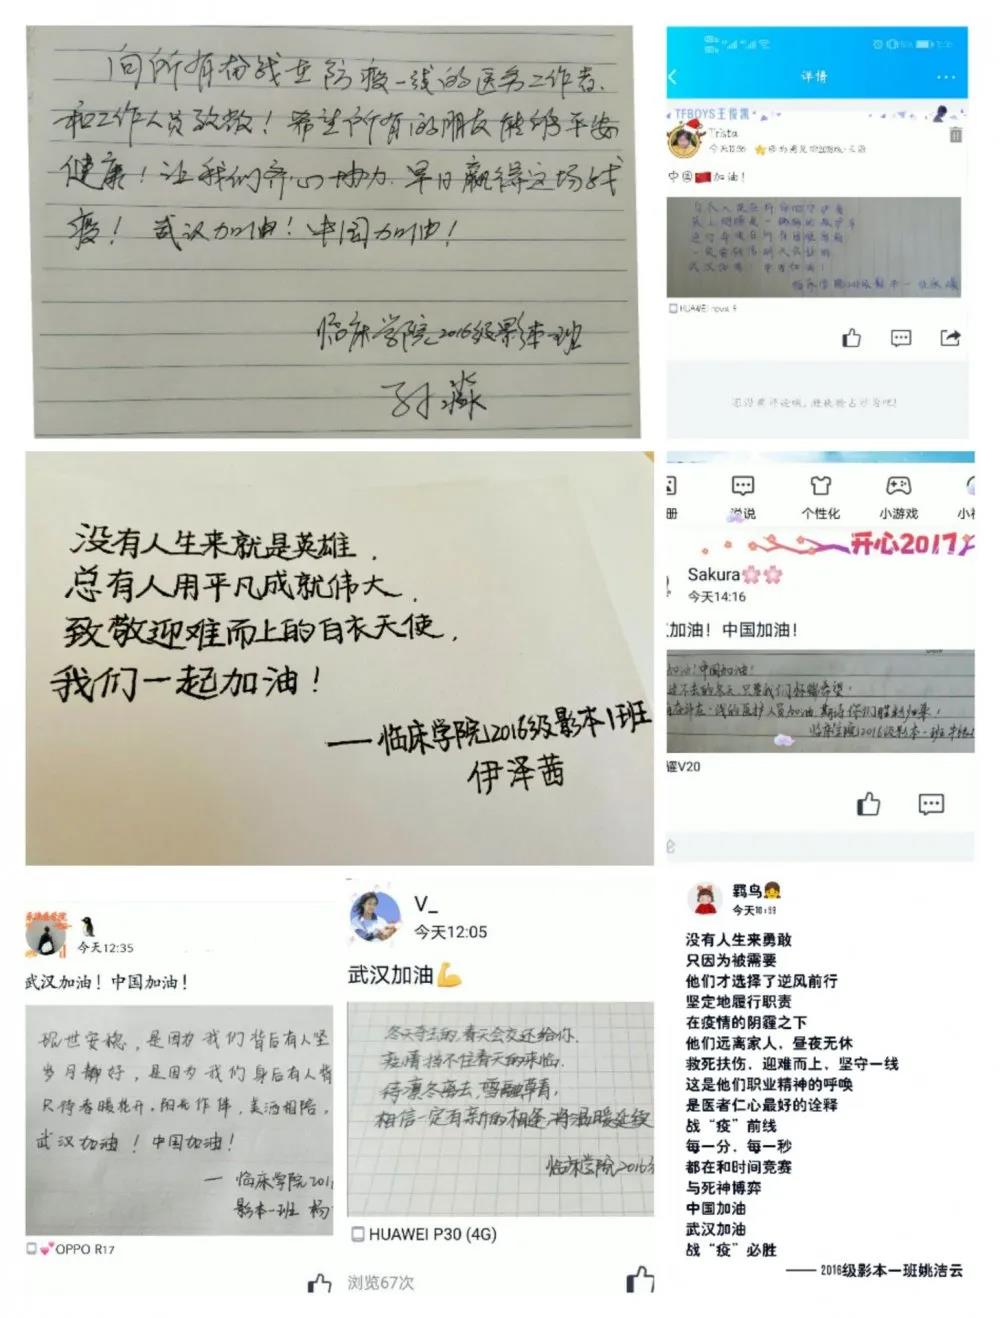 向所有奋战在防疫一线的医务工作者、
和工作人员致敬！希望所有的朋友能够平安
健康！让我们齐心协力、早日赢得这场战
疫！武汉加油！中国加油！
临床学院2016级影本一班
孙淼
详情
TFBOYS王俊凯
Trista
中国🇨🇳加油！
武汉加油！中国加油！
HUAWEI nova
还没有评论哦，赶快抢占沙发吧！
没有人生来就是英雄，
总有人用平凡成就伟大，
致敬迎难而上的白衣天使，
我们一起加油！
——临床学院2016级影本1班
伊泽茜
说说
个性化
小游戏
开心2017
Sakura🌸🌸
今天14:16
加油！中国加油！
加油！中国加油！
过不去的冬天，只要我们怀揣希望，
一线的医护人员加油，期待你们胜利归来！
临床学院2016级影本一班
V20
今天12:35
武汉加油！中国加油！
现世安稳，是因为我们背后有人坚
岁月静好，是因为我们身后有人
只待春暖花开，阳光作伴，美酒相陪。
武汉加油！中国加油！
— 临床学院201
影本一班 杨
OPPO R17
V_
今天12:05
武汉加油💪
冬天夺去的，春天会交还给你。
疫情挡不住春天的来临。
待凛冬离去，雪融草青，
相信一定有新的相逢，将温暖延续
临床学院2016
HUAWEI P30 (4G)
浏览67次
羁鸟👧
今天10:59
没有人生来勇敢
只因为被需要
他们才选择了逆风前行
坚定地履行职责
在疫情的阴霾之下
他们远离家人，昼夜无休
救死扶伤，迎难而上，坚守一线
这是他们职业精神的呼唤
是医者仁心最好的诠释
战“疫”前线
每一分，每一秒
都在和时间竞赛
与死神博弈
中国加油
武汉加油
战“疫”必胜
—— 2016级影本一班姚洁云